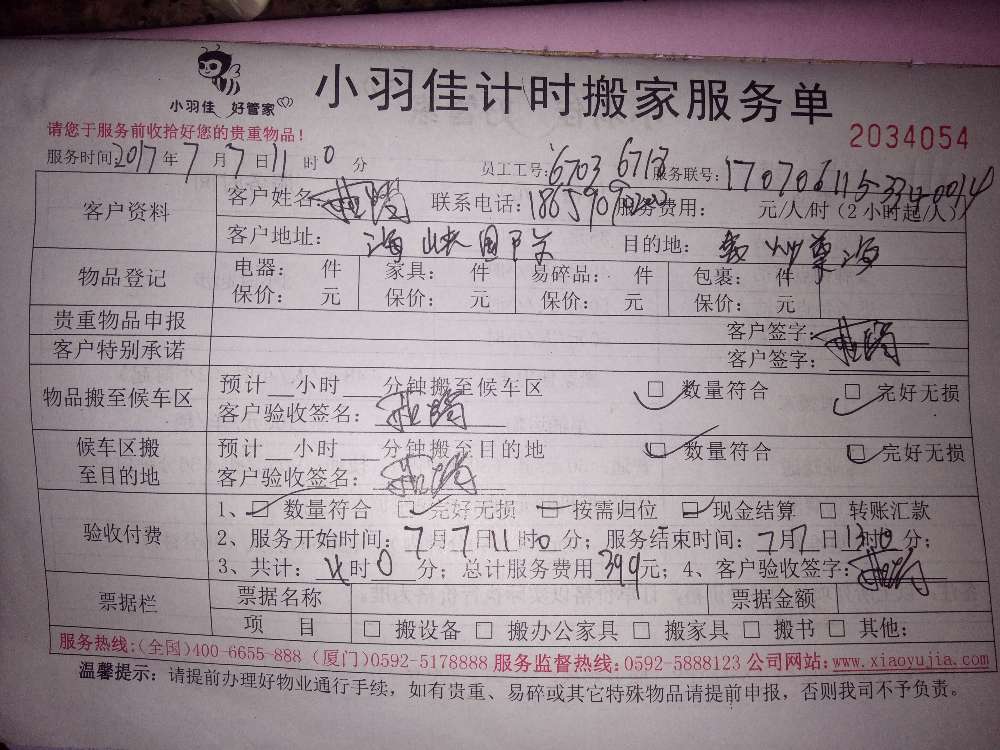 小羽佳 好管家
小羽佳计时搬家服务单
请您于服务前收拾好您的贵重物品！
2034054
服务时间：2017年7月7日11时0分 员工工号：6703 6713 服务联号：
客户资料 客户姓名： 联系电话： 服务费用： 元/人/时（2小时起/人）
客户地址：海峡国 目的地：
物品登记 电器： 件 家具： 件 易碎品： 件 包裹： 件
保价： 元 保价： 元 保价： 元 保价： 元
贵重物品申报 客户签字：
客户特别承诺 客户签字：
物品搬至候车区 预计 小时 分钟搬至候车区 □ 数量符合 □ 完好无损
客户验收签名：
候车区搬至目的地 预计 小时 分钟搬至目的地 □ 数量符合 □ 完好无损
客户验收签名：
验收付费 1、□ 数量符合 □ 完好无损 □ 按需归位 □ 现金结算 □ 转账汇款
2、服务开始时间：7月7日11时0分；服务结束时间：7月7日13时0分；
3、共计： 时0分；总计服务费用399元；4、客户验收签字：
票据栏 票据名称 票据金额
项 目 □ 搬设备 □ 搬办公家具 □ 搬家具 □ 搬书 □ 其他：
服务热线：(全国)400-6655-888 (厦门)0592-5178888 服务监督热线：0592-5888123 公司网站：www.xiaoyujia.com
温馨提示：请提前办理好物业通行手续，如有贵重、易碎或其它特殊物品请提前申报，否则我司不予负责。